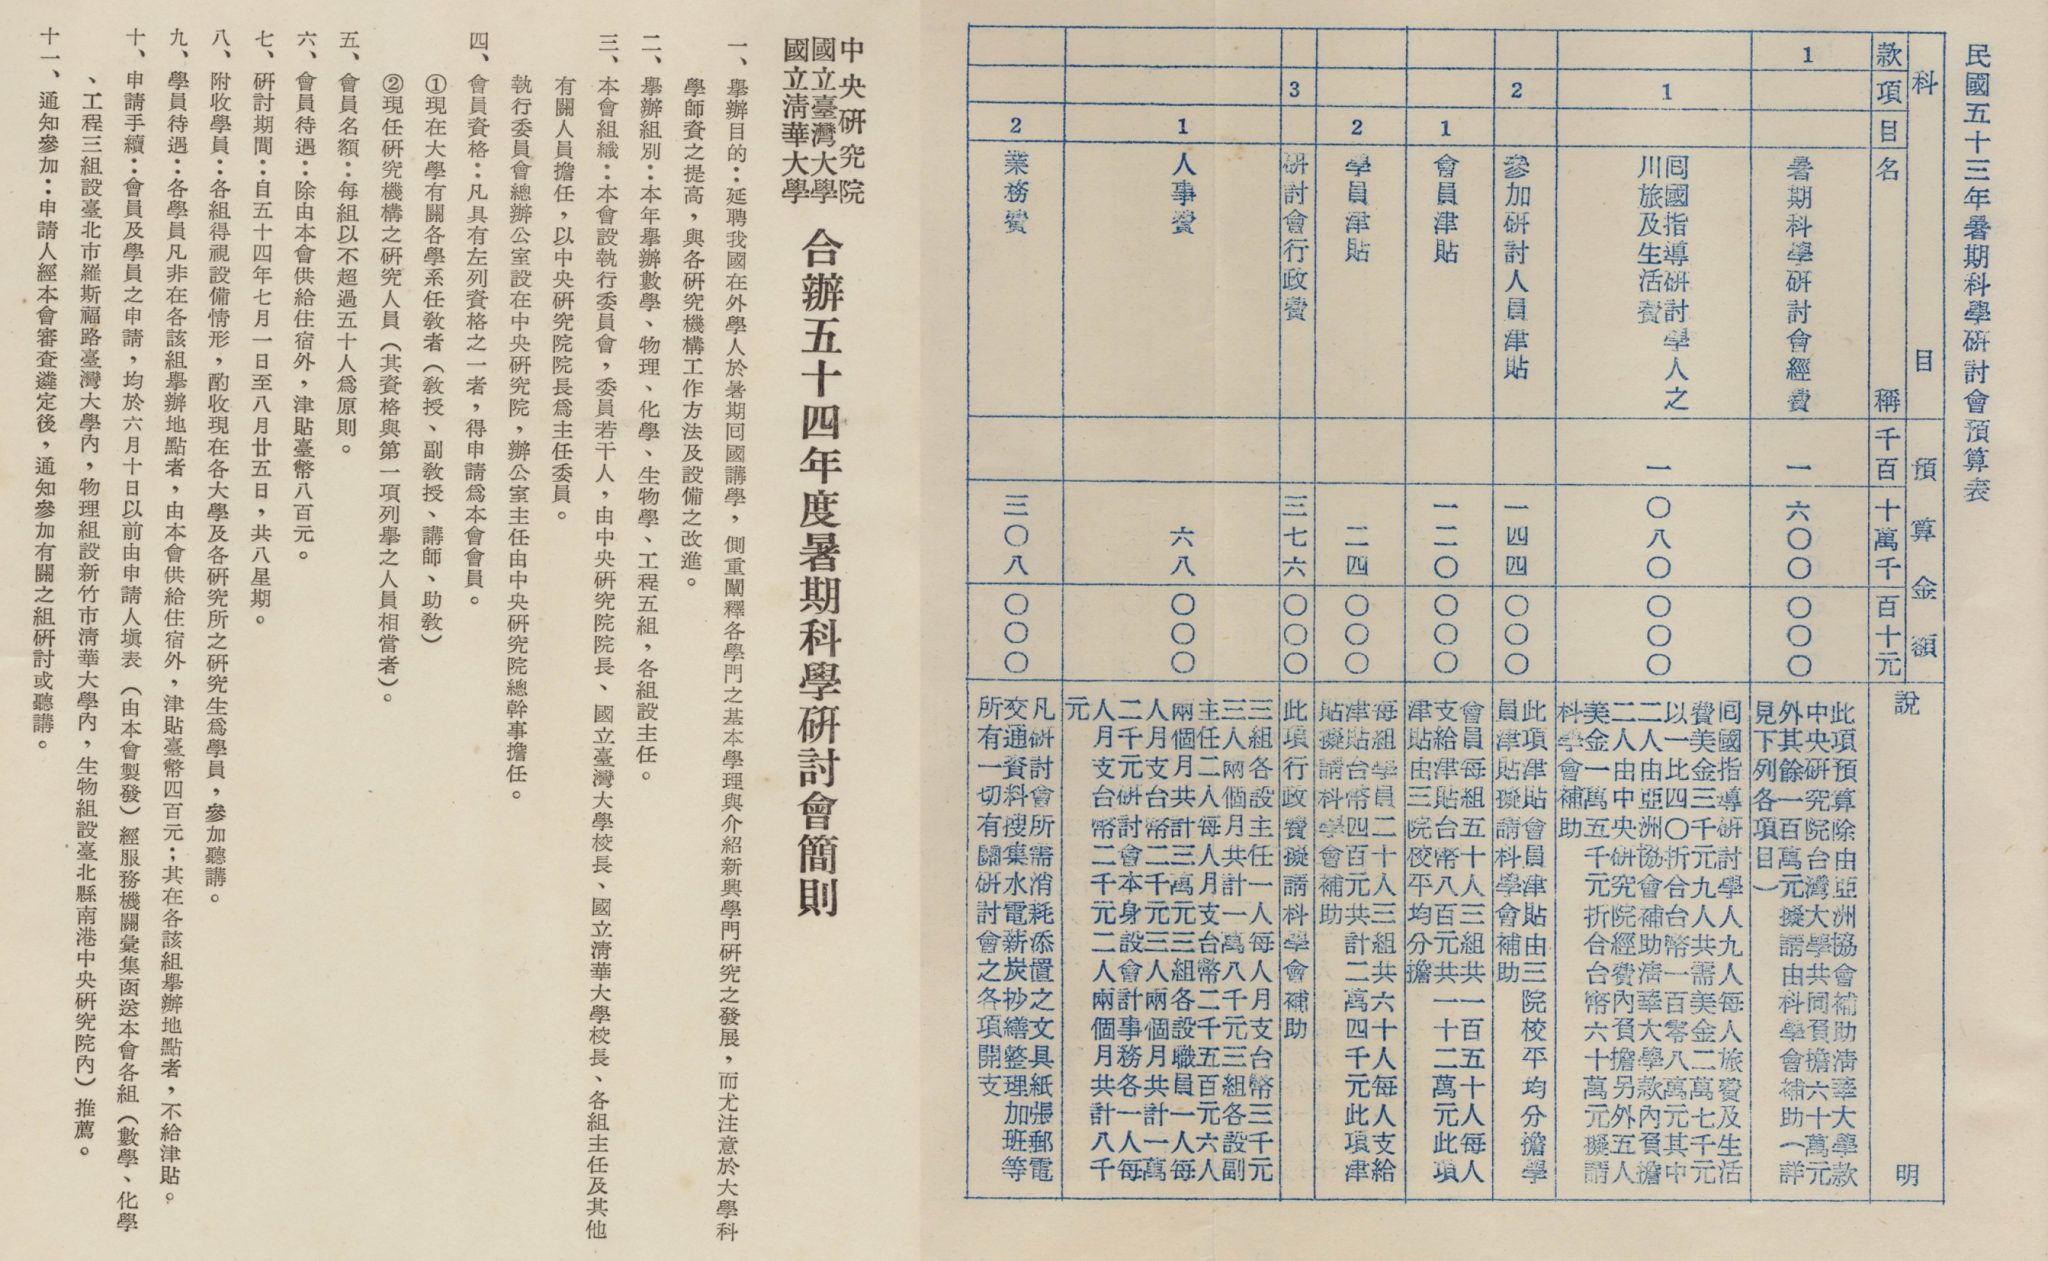 民國五十三年暑期科學研討會預算表
科目
預算金額
說明
款
項
目
名稱
千百
十萬千
百十元
1
暑期科學研討會經費
一
六〇〇
〇〇〇
此項預算除由亞洲協會補助清華大學款
中央研究院台灣大學共同負擔六十萬元
外其餘一百萬元擬請由科學會補助(詳
見下列各項目)
1
囘國指導研討學人之
川旅及生活費
一
〇八〇
〇〇〇
囘國指導研討學人九人每人旅費及生活
費美金三千元九人共需美金二萬七千元
以一比四〇折合台幣一百零八萬元其中
二人由亞洲協會補助清華大學款內負擔
二人由中央研究院經費內負擔另外五人
美金一萬五千元折合台幣六十萬元擬請
科學會補助
2
參加研討人員津貼
一四四
〇〇〇
此項津貼會員津貼由三院校平均分擔學
員津貼擬請科學會補助
1
會員津貼
一二〇
〇〇〇
會員每組五十人三組共一百五十人每人
支給津貼台幣八百元共一十二萬元此項
津貼由三院校平均分擔
2
學員津貼
二四
〇〇〇
每組學員二十人三組共六十人每人支給
津貼台幣四百元共計二萬四千元此項津
貼擬請科學會補助
3
研討會行政費
三七六
〇〇〇
此項行政費擬請科學會補助
1
人事費
六八
〇〇〇
三組各設主任一人每人月支台幣三千元
三人兩個月共計一萬八千元三組各設副
主任二人每人月支台幣二千五百元六人
兩個月共計三萬元三組各設職員一人每
人月支台幣二千元三人兩個月共計一萬
二千元研討會本身設會計事務各一人每
人月支台幣二千元二人兩個月共計八千
元
2
業務費
三〇八
〇〇〇
凡研討會所需消耗添置之文具紙張郵電
交通資料搜集水電薪炭抄繕整理加班等
所有一切有關研討會之各項開支
中央研究院
國立臺灣大學
國立清華大學
合辦五十四年度暑期科學研討會簡則
一、舉辦目的:延聘我國在外學人於暑期囘國講學,側重闡釋各學門之基本學理與介紹新興學門研究之發展,而尤注意於大學科
學師資之提高,與各研究機構工作方法及設備之改進。
二、舉辦組別:本年舉辦數學、物理、化學、生物學、工程五組,各組設主任。
三、本會組織:本會設執行委員會,委員若干人,由中央研究院院長、國立臺灣大學校長、國立清華大學校長、各組主任及其他
有關人員擔任,以中央研究院院長爲主任委員。
執行委員會總辦公室設在中央研究院,辦公室主任由中央研究院總幹事擔任。
四、會員資格:凡具有左列資格之一者,得申請爲本會會員。
①現在大學有關各學系任敎者(敎授、副敎授、講師、助敎)
②現任研究機構之研究人員(其資格與第一項列舉之人員相當者)。
五、會員名額:每組以不超過五十人爲原則。
六、會員待遇:除由本會供給住宿外,津貼臺幣八百元。
七、研討期間:自五十四年七月一日至八月廿五日,共八星期。
八、附收學員:各組得視設備情形,酌收現在各大學及各研究所之研究生爲學員,參加聽講。
九、學員待遇:各學員凡非在各該組舉辦地點者,由本會供給住宿外,津貼臺幣四百元;其在各該組舉辦地點者,不給津貼。
十、申請手續:會員及學員之申請,均於六月十日以前由申請人塡表(由本會製發)經服務機關彙集函送本會各組(數學、化學
、工程三組設臺北市羅斯福路臺灣大學內,物理組設新竹市清華大學內,生物組設臺北縣南港中央研究院內)推薦。
十一、通知參加:申請人經本會審查遴定後,通知參加有關之組研討或聽講。